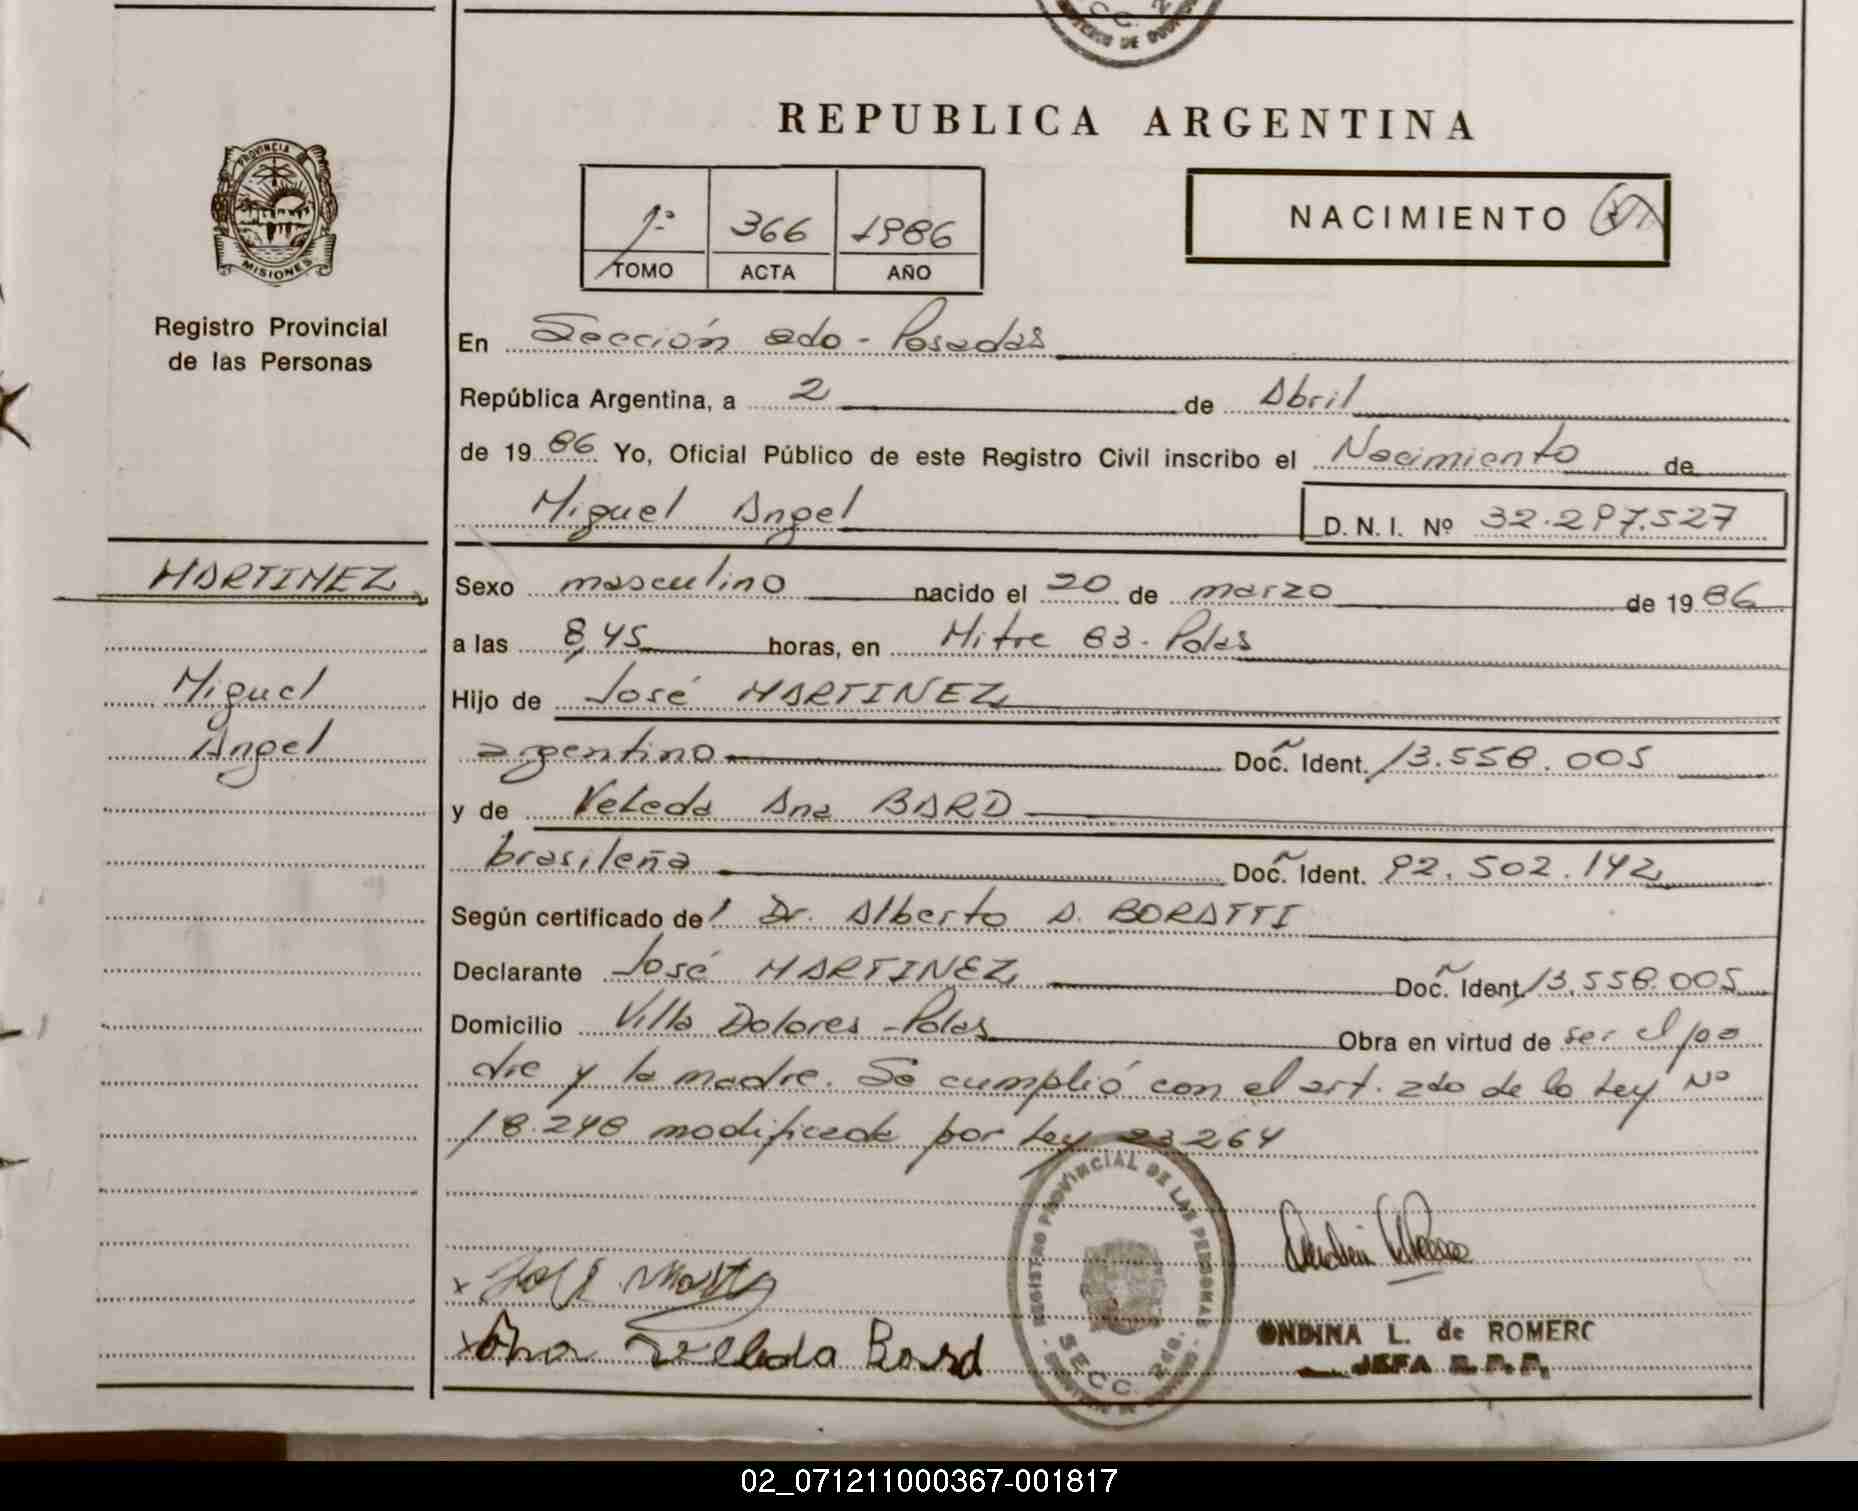 REPUBLICA ARGENTINA
PROVINCIA
MISIONES
Registro Provincial
de las Personas
1º 366 1986
TOMO ACTA AÑO
NACIMIENTO
En Sección 2do - Posadas
República Argentina, a 2 de Abril
de 19 86 Yo, Oficial Público de este Registro Civil inscribo el Nacimiento de
Miguel Angel D. N. I. Nº 32.297.527
MARTINEZ
Miguel
Angel
Sexo masculino nacido el 20 de marzo de 19 86
a las 8,45 horas, en Mitre 83 - Pdas
Hijo de José MARTINEZ
argentino Doc. Ident. 13.558.005
y de Veleda Ana BARD
brasileña Doc. Ident. 92.502.142
Según certificado de Dr. Alberto A. BORATTI
Declarante José MARTINEZ Doc. Ident. 13.558.005
Domicilio Villa Dolores - Pdas Obra en virtud de ser el pa
dre y la madre. Se cumplió con el art. 2do de la Ley Nº
18.248 modificada por Ley 23264
REGISTRO PROVINCIAL DE LAS PERSONAS
SECC. 2da.
Ana Veleda Bard
ONDINA L. de ROMERO
JEFA R. P. P.
02_071211000367-001817